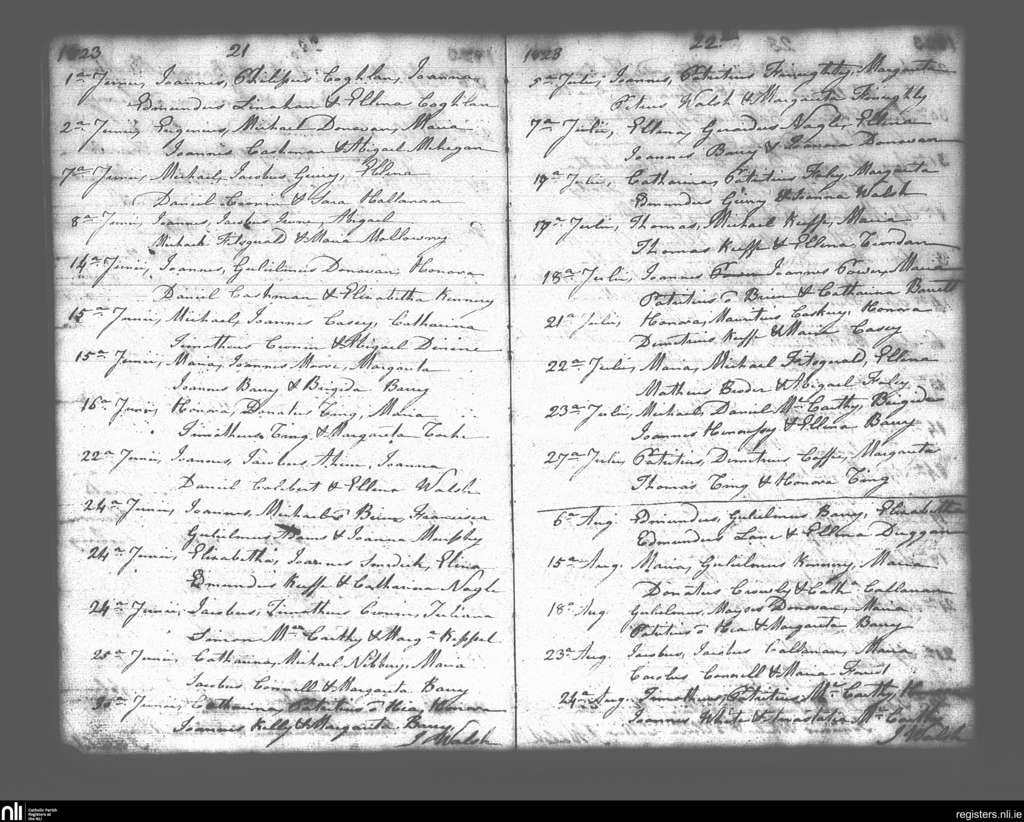 1823 21
1a Junii, Joannes, Philipus Coghlan, Joanna
Edmundus Linahan & Ellena Coghlan
2a Junii, Eugenius, Michael Donovan, Maria
Joannes Cashman & Abigael Mehegan
7a Junii, Michael, Jacobus Geury, Ellena
Daniel Cronin & Sara Hallanan
8a Junii, Joannes, Jacobus Abigael
Michael Fitzgerald & Maria Mollowny
14a Junii, Joannes, Gulielmus Donovan, Honora
Daniel Cashman & Elizabetha Kenney
15a Junii, Michael, Joannes Casey, Catharina
Timotheus Cronin & Abigael
15a Junii, Maria, Joannes Moore, Margarita
Joannes Barry & Brigida Barry
16a Junii, Honora, Donatus Ting, Maria
Timotheus Ting & Margareta
22a Junii, Joannes, Jacobus Ahern, Joanna
Daniel Colbert & Ellena Walsh
24a Junii, Joannes, Michael o Brien, Francisca
Gulielmus Adams & Joanna Murphy
24a Junii, Elizabetha, Joannes Elina
Edmundus Keeffe & Catharina Nagle
24a Junii, Jacobus, Timotheus Cronin, Juliana
Simon Mc Carthy & Marga Keppel
25a Junii, Catharina, Michael Maria
Jacobus Connell & Margarita Barry
30a Junii, Catharina Patritius o Hea, Honora
Joannes Kelly & Margarita Barry
J Walsh
1823 22
5a Julii, Joannes, Patritius Finughty, Margarita
Petrus Walsh & Margarita Finughty
7a Julii, Ellena, Gerardus Nagle, Ellena
Joannes Barry & Honora Donovan
19a Julii, Catharina, Patritius Fahy, Margarita
Edmundus Geury & Joanna Walsh
19a Julii, Thomas, Michael Keeffe, Maria
Thomas Keeffe & Ellena
18a Julii, Joannes Joannes Power, Maria
Patritius o Brien & Catharina Barrett
21a Julii, Honora, Mauritius Honora
Demetrius Keeffe & Maria Casey
22a Julii, Maria, Michael Fitzgerald, Ellena
Matheus & Abigael Foley
23a Julii, Michael, Daniel Mc Carthy, Brigida
Joannes Hennessy & Ellena Barry
27a Julii, Patritius, Demetrius Coffee, Margarita
Thomas Ting & Honora Ting
6a Aug. Edmundus, Gulielmus Barry, Elizabetha
Edmundus Lane & Ellena Duggan
15a Aug. Maria, Gulielmus Kenny, Maria
Donatus Crowly & Catha Callanan
18a Aug. Gulielmus, Donovan, Maria
Patritius o Hea & Margarita Barry
23a Aug. Jacobus, Jacobus Callanan, Maria
Carolus Connell & Maria
24a Aug. Timotheus, Patritius Mc Carthy
Joannes White & Anastatia Mc Carthy
J Walsh
nli
Catholic Parish
Registers at
the NLI
registers.nli.ie